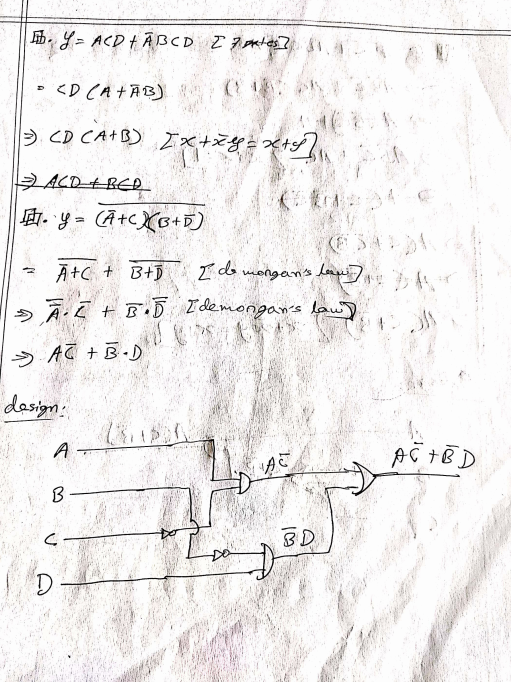 y = ACD + A̅BCD [7 notes]
= CD (A + A̅B)
⇒ CD (A+B) [x + x̅y = x+y]
⇒ ACD + BCD
y = \overline{(A̅+C)(B+D̅)}
= \overline{A̅+C} + \overline{B+D̅} [de morgan's law]
⇒ A̿.C̅ + B̅.D̿ [demorgan's law]
⇒ AC̅ + B̅.D
design:
A
AC̅
AC̅ + B̅D
B
C
B̅D
D